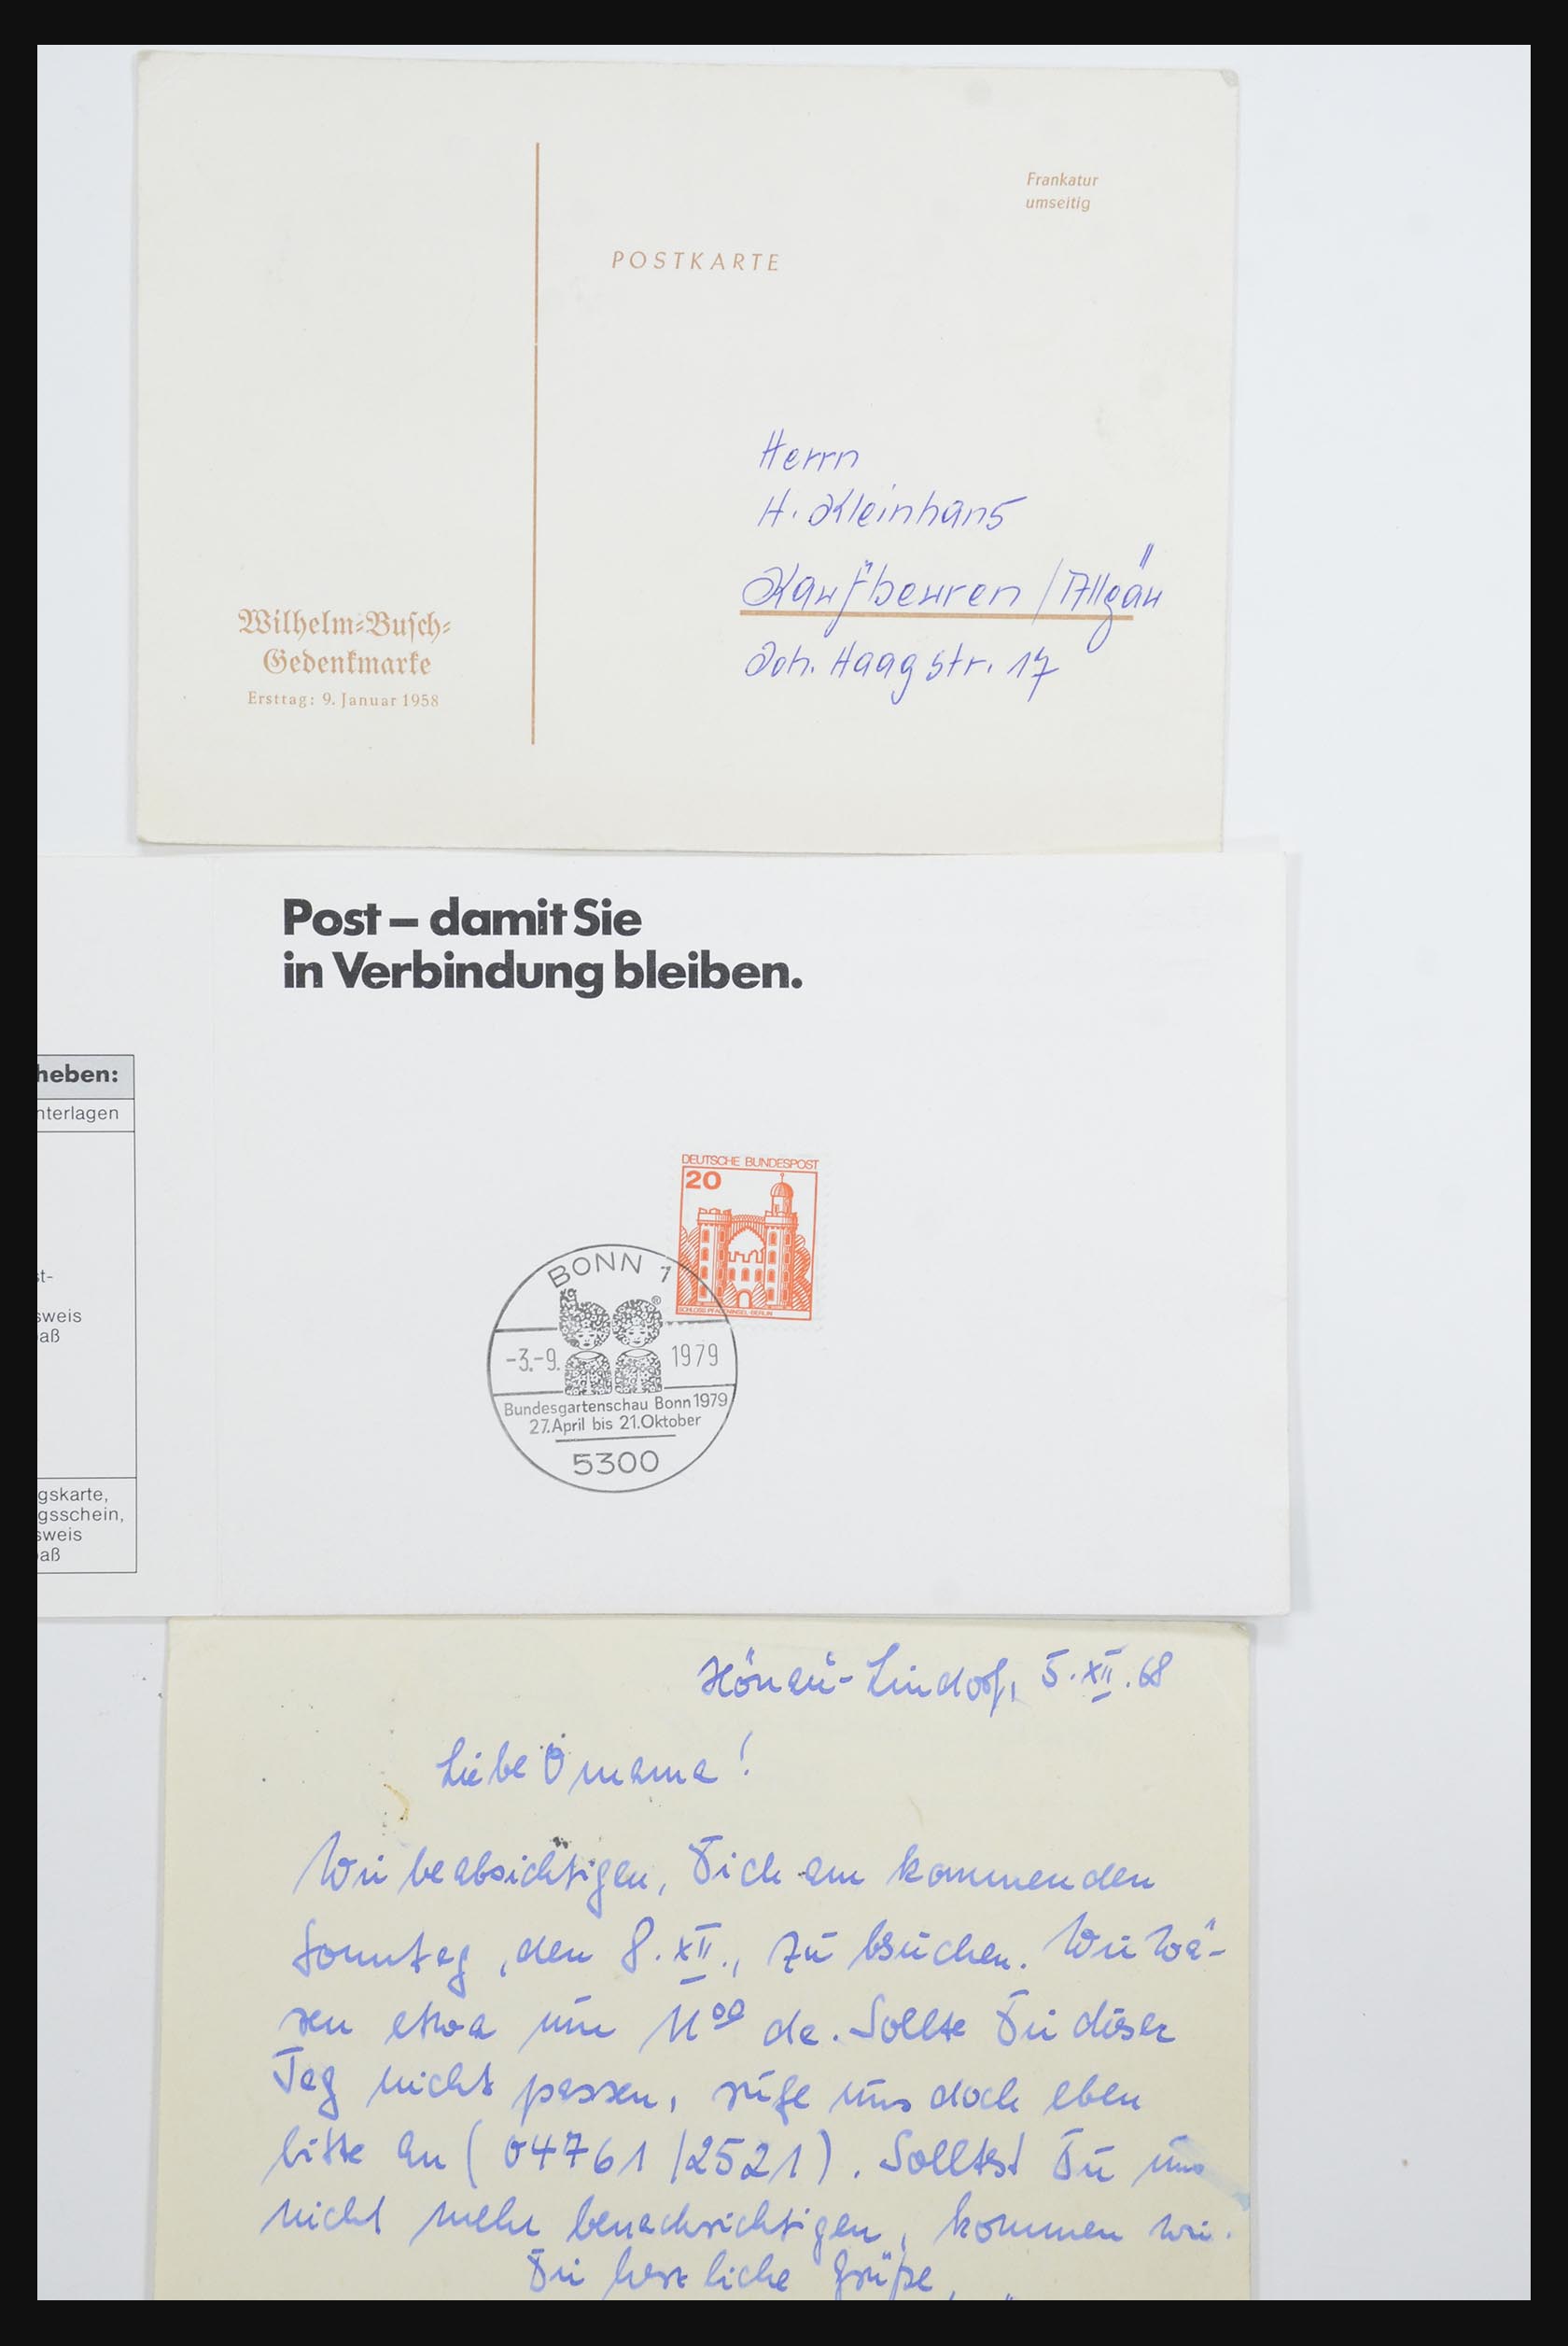 Frankatur
umseitig
POSTKARTE
Herrn
H. Kleinhans
Kaufbeuren / Allgäu
Joh. Haag str. 17
Wilhelm-Busch-
Gedenkmarke
Ersttag: 9. Januar 1958
Post – damit Sie
in Verbindung bleiben.
heben:
nterlagen
st-
sweis
aß
gskarte,
gsschein,
sweis
aß
DEUTSCHE BUNDESPOST
20
SCHLOSS PFAUENINSEL-BERLIN
BONN 1
-3.-9. 1979
Bundesgartenschau Bonn 1979
27. April bis 21. Oktober
5300
5. XII. 68
Liebe Omama!
Wir beabsichtigen, Dich am kommenden
Sonntag, den 8. XII., zu besuchen. Wir wä-
ren etwa um 11⁰⁰ da. Sollte Dir dieser
Tag nicht passen, rufe uns doch eben
bitte an (04761/2521). Solltest Du uns
nicht mehr benachrichtigen, kommen wir.
Dir herzliche Grüße